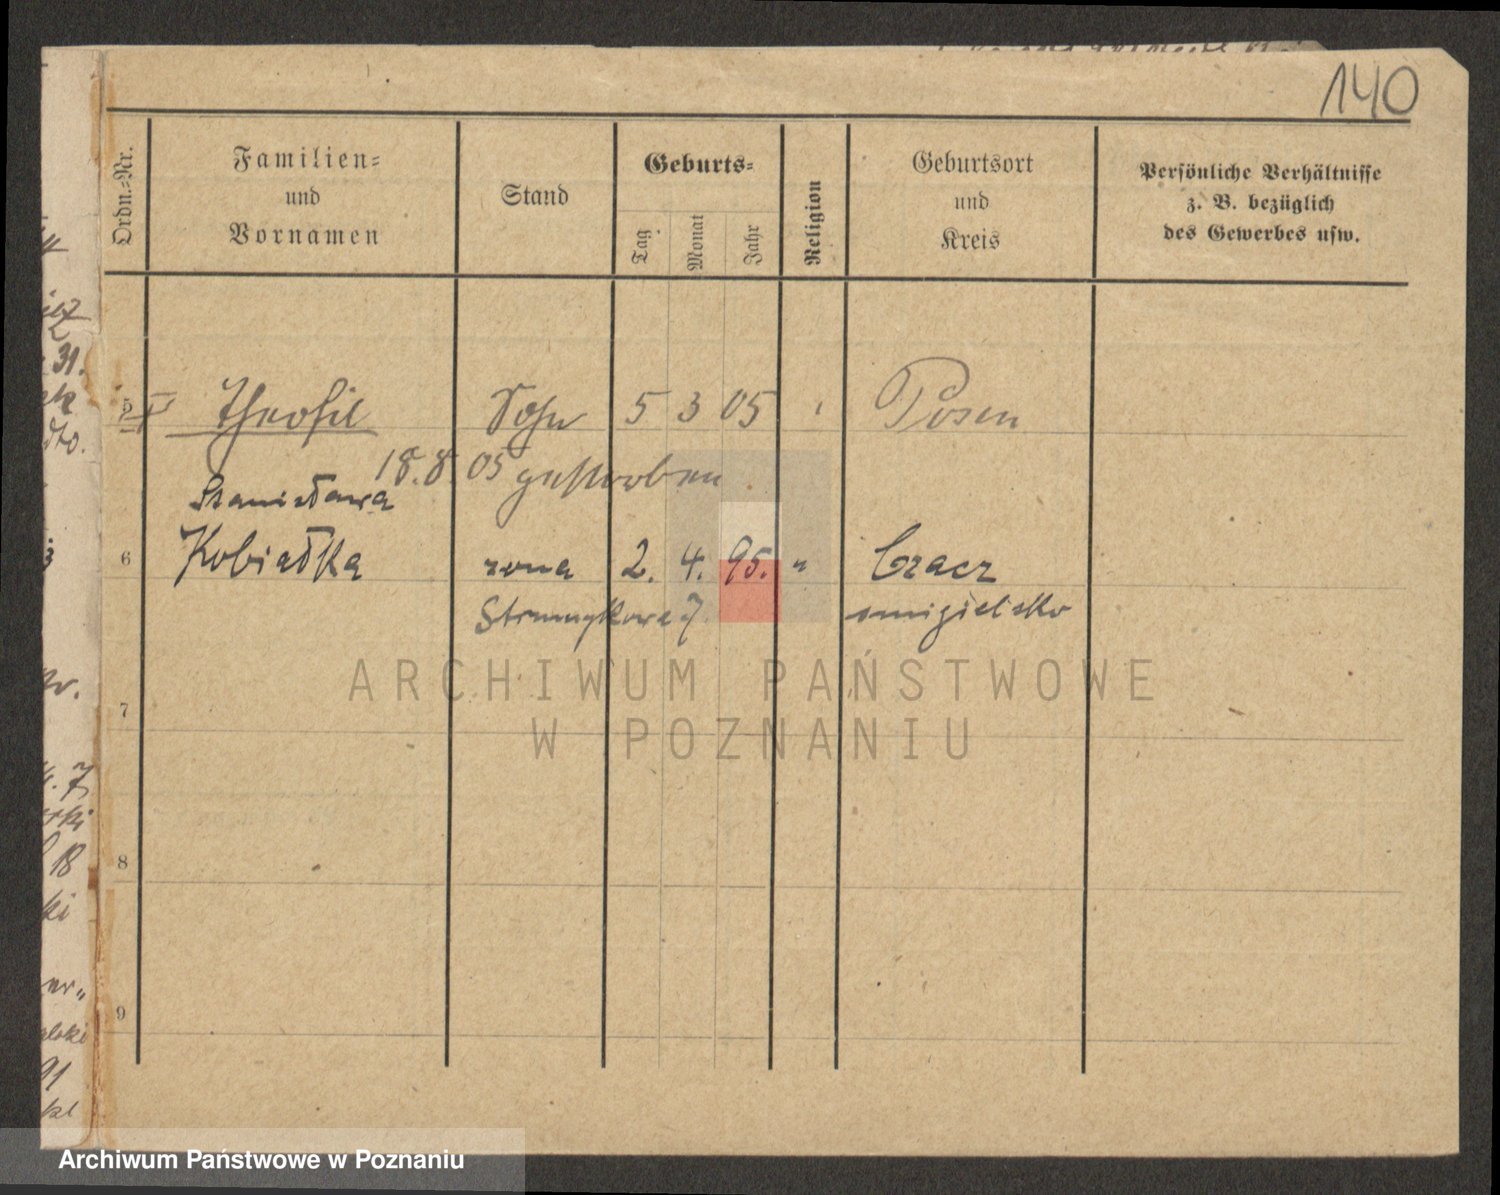 140
Ordn.-Nr.
Familien-
und
Vornamen
Stand
Geburts-
Tag
Monat
Jahr
Religion
Geburtsort
und
Kreis
Persönliche Verhältnisse
z. B. bezüglich
des Gewerbes usw.
5 Theofil Sohn 5 3 05 Posen
18.8.05 gestorben
Stanisława
6 Kobiałka żona 2. 4. 95. " Czacz
Strumykowa 7 śmigielsko
ARCHIWUM PAŃSTWOWE
W POZNANIU
7
8
9
31.
18
91
Archiwum Państwowe w Poznaniu